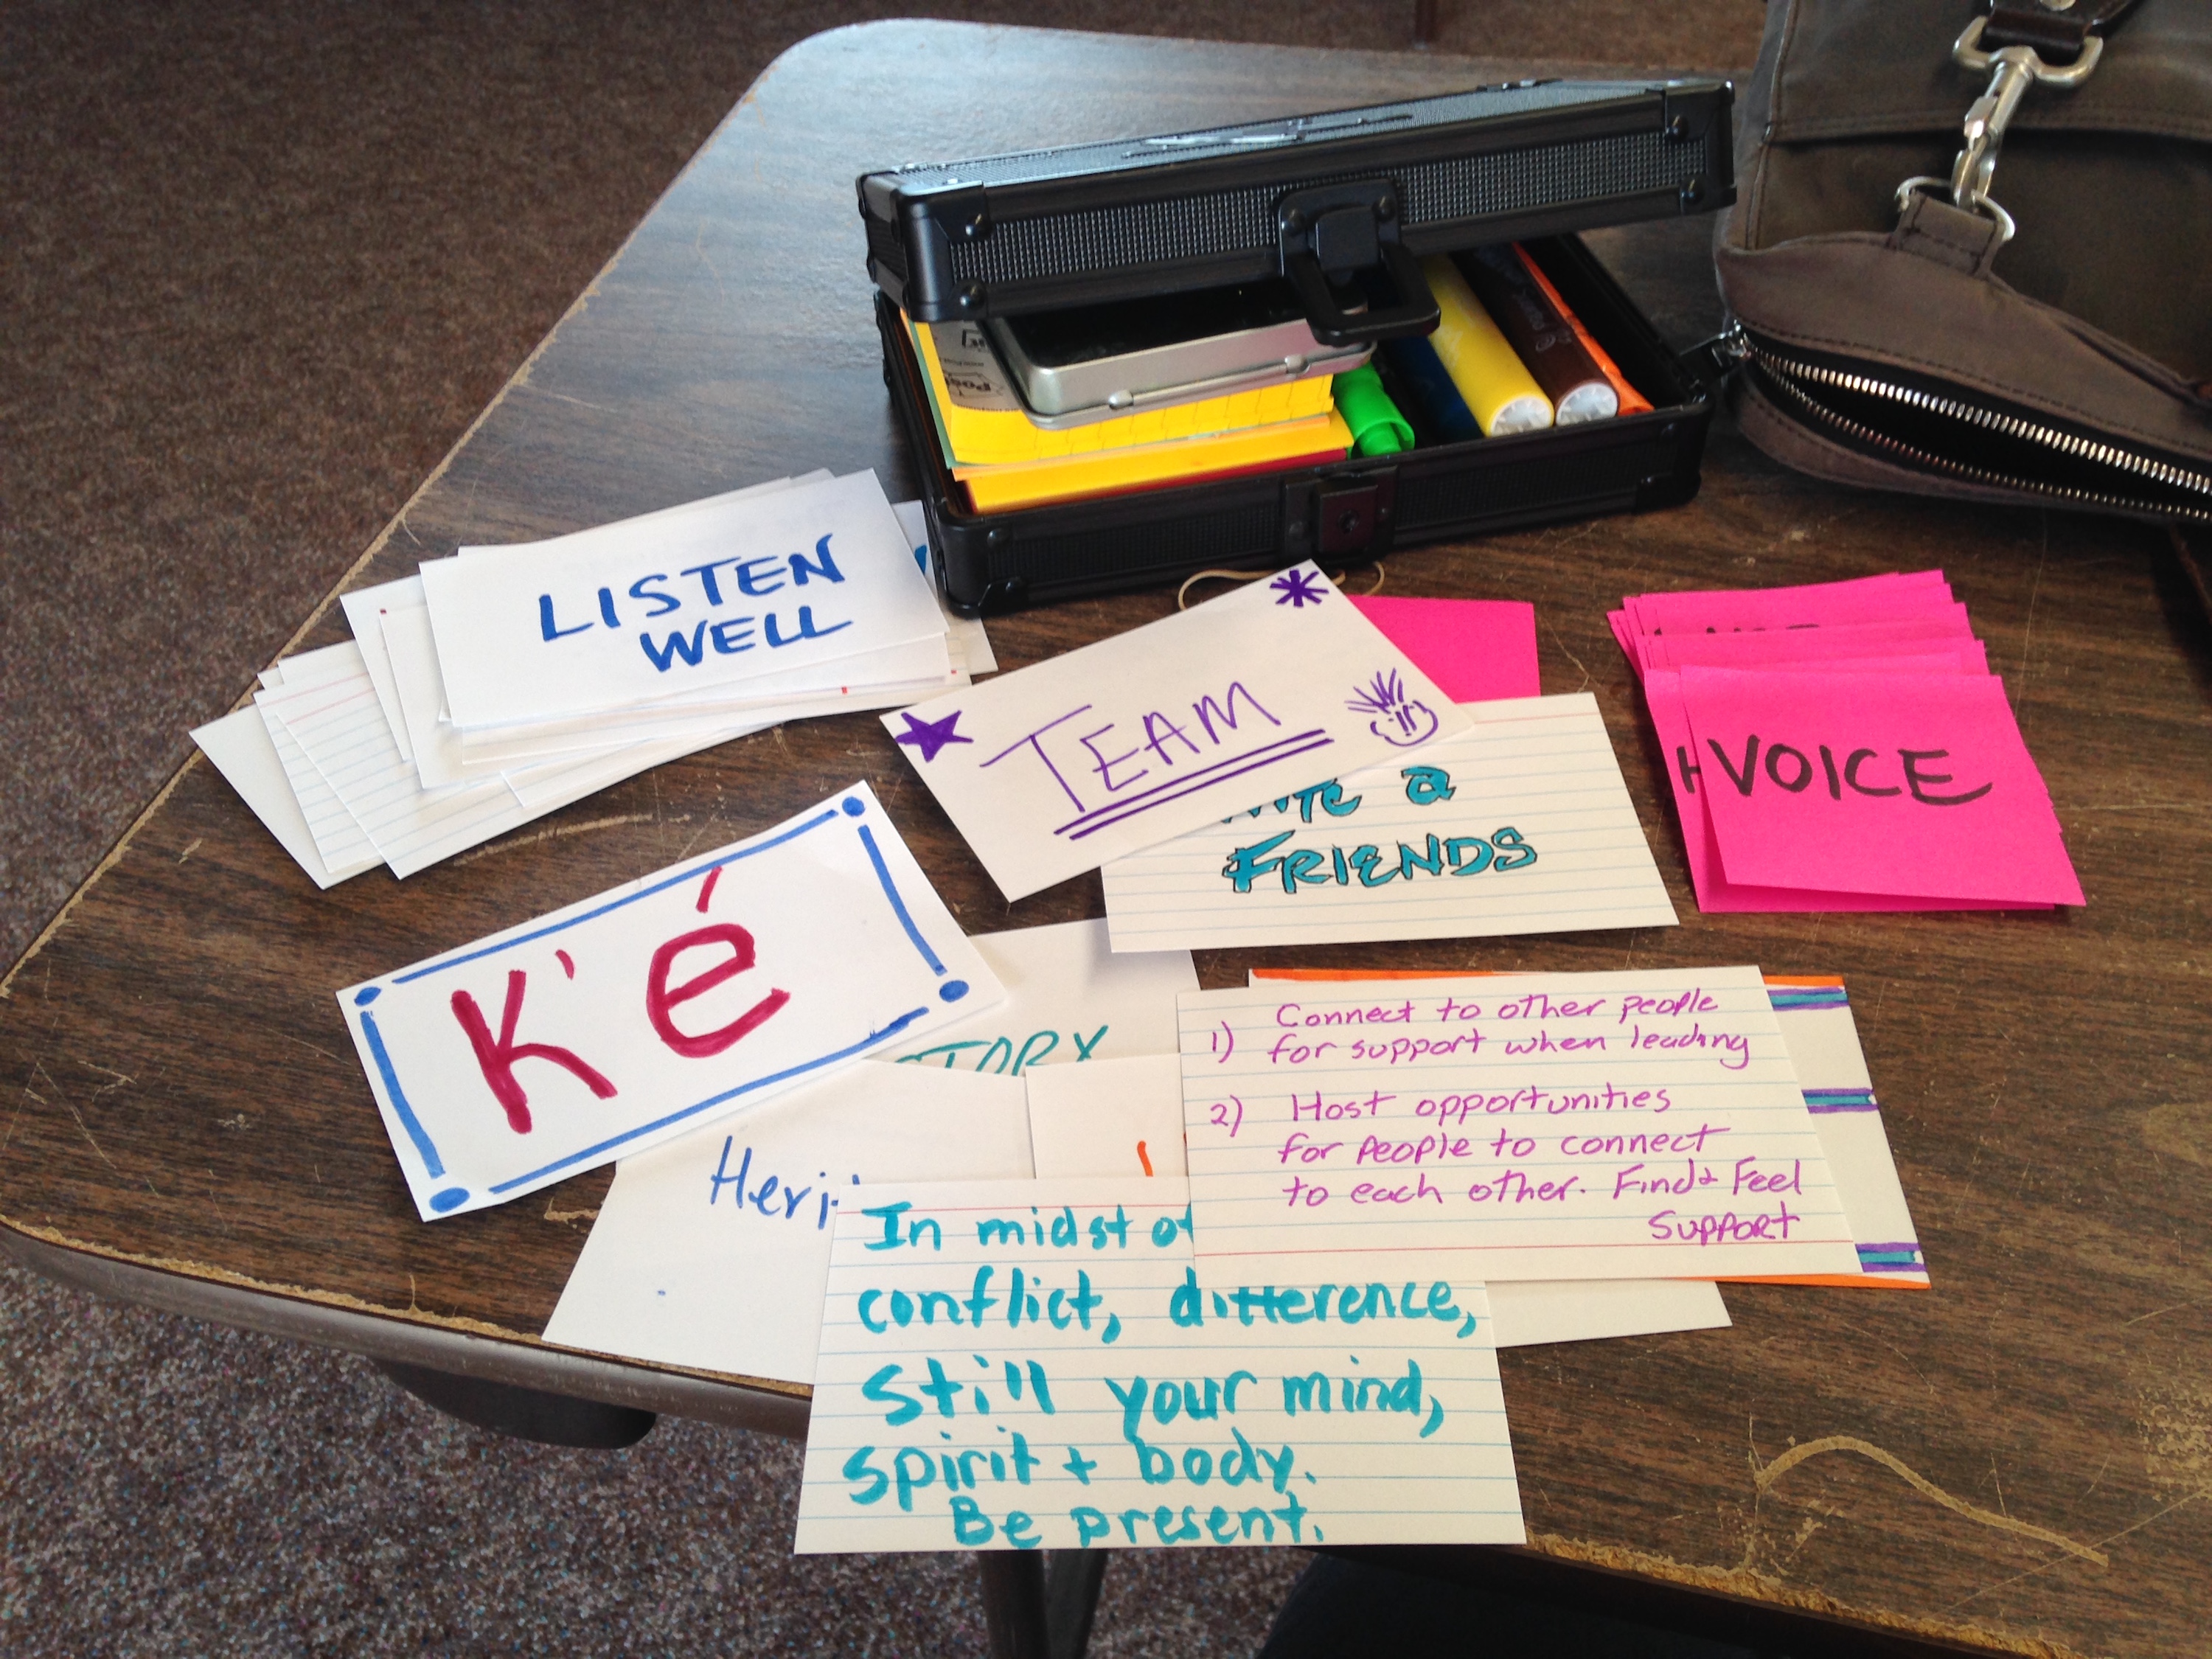 LISTEN
WELL
TEAM
a
FRIENDS
VOICE
K'é
STORY
1) Connect to other people
for support when leading
2) Host opportunities
for people to connect
to each other. Find & Feel
Support
In midst of
conflict, difference,
Still your mind,
spirit + body.
Be present.